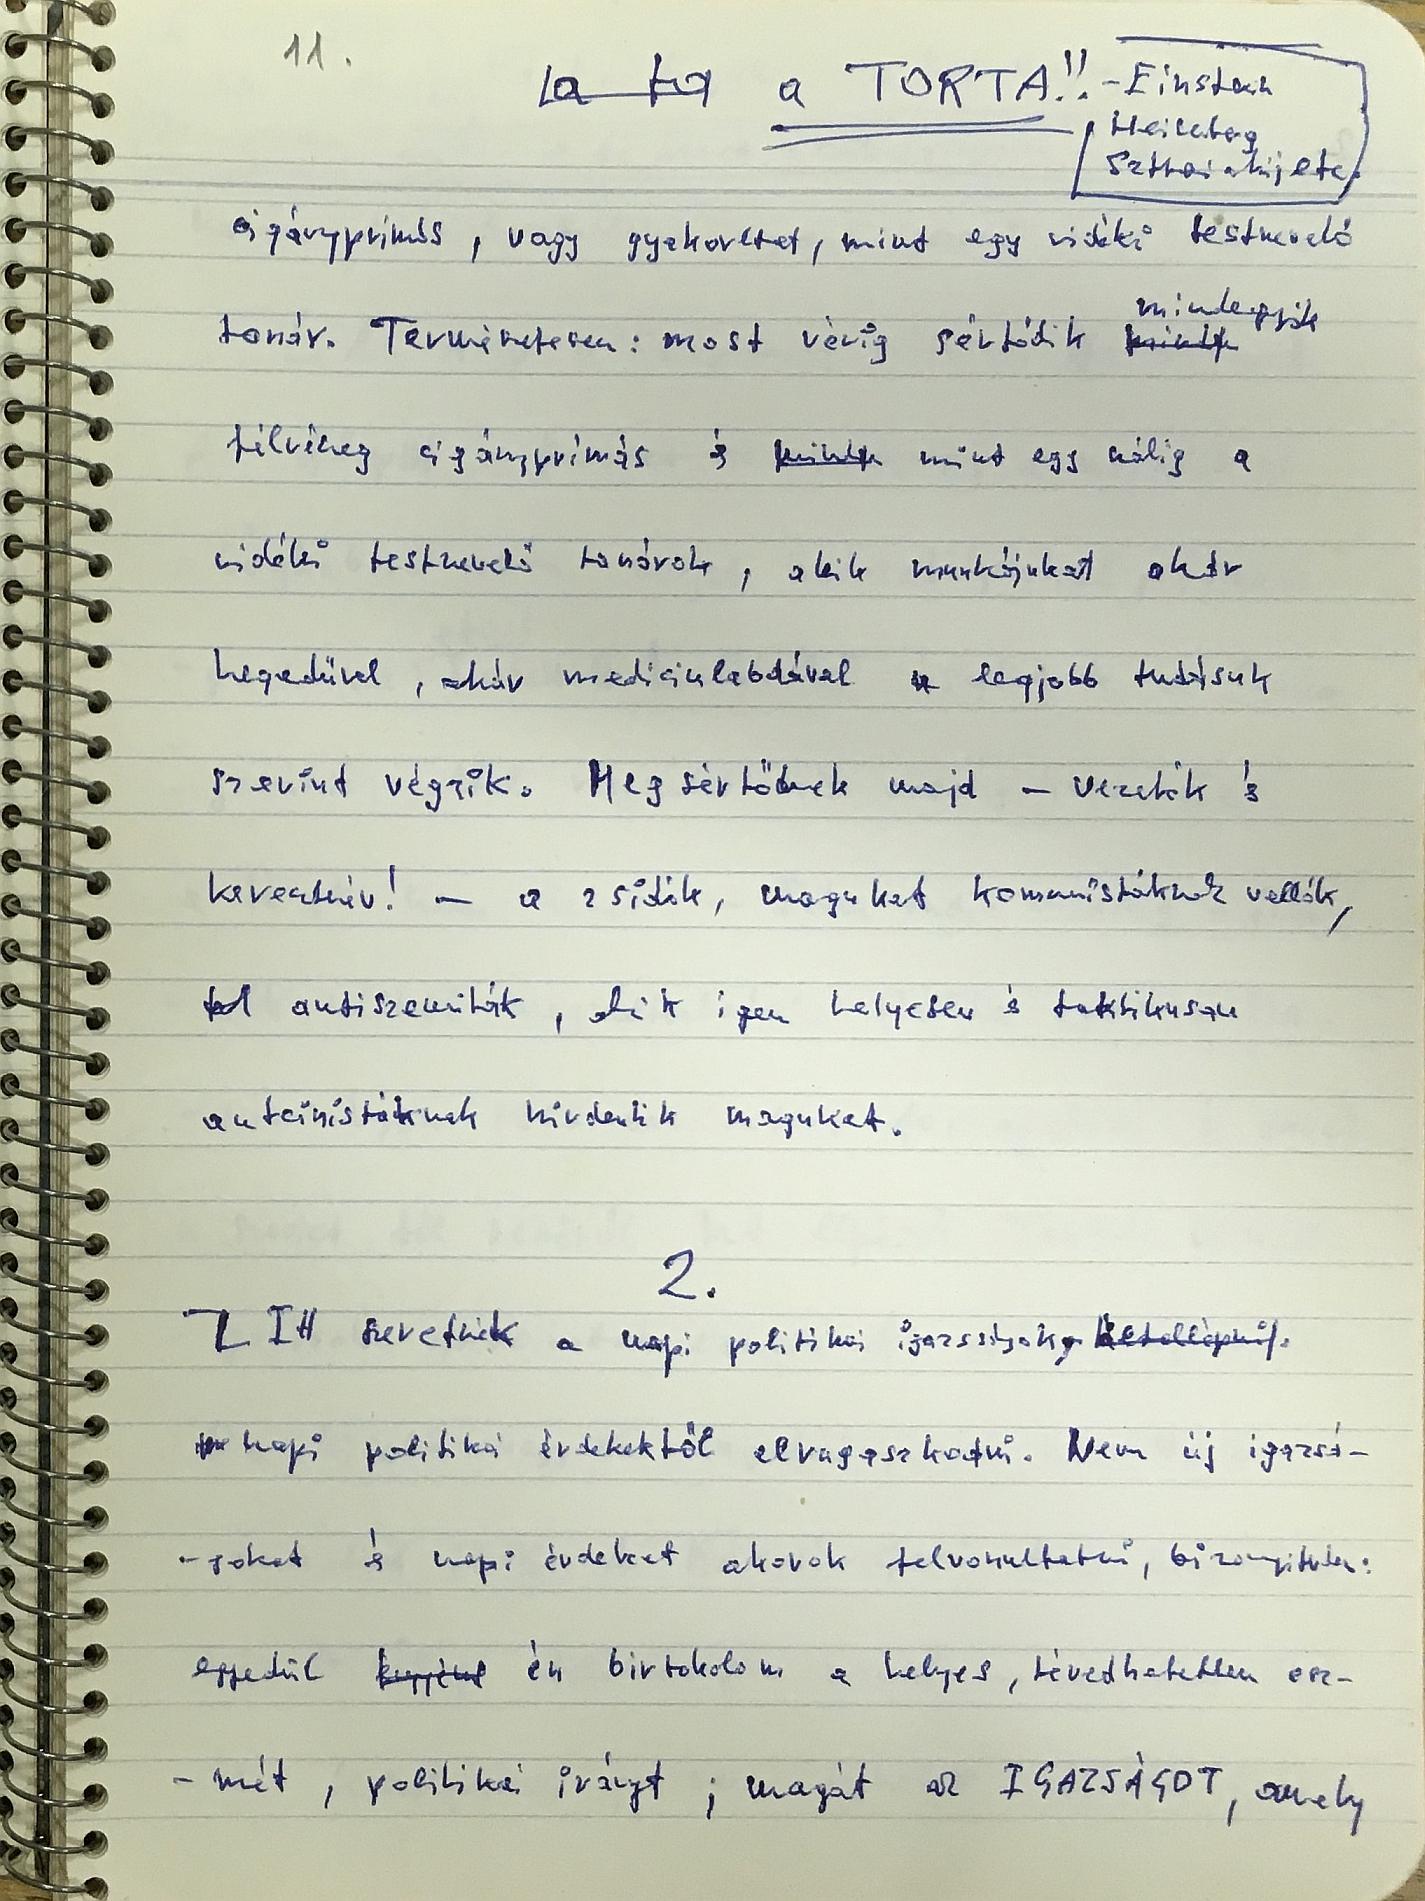 11.
a TORTA!! - Einstein
cigányprímás, vagy gyakorltat, mint egy vidéki testnevelő
tanár. Természetesen: most vérig sértődik mindegyik
félvineg cigányprímás és mint egy a
vidéki testnevelő tanárok, akik munkájukat akár
hegedűvel, akár medicinlabdával legjobb tudásuk
szerint végzik. Megsértődnek majd — vezetők és
keresztnév! — a zsidók, magukat kommunistáknak vallók,
antiszemiták, akik igen helyesen és taktikusan
anticinistáknak hirdetik magukat.
2.
szeretnék a napi politikai igazságok,
napi politikai érdekektől elrugaszkodni. Nem új igazsá-
-gokat és napi érdeket akarok felvonultatni, bizonyítván:
egyedül én birtokolom a helyes, tévedhetetlen esz-
-mét, politikai irányt; magát az IGAZSÁGOT, amely